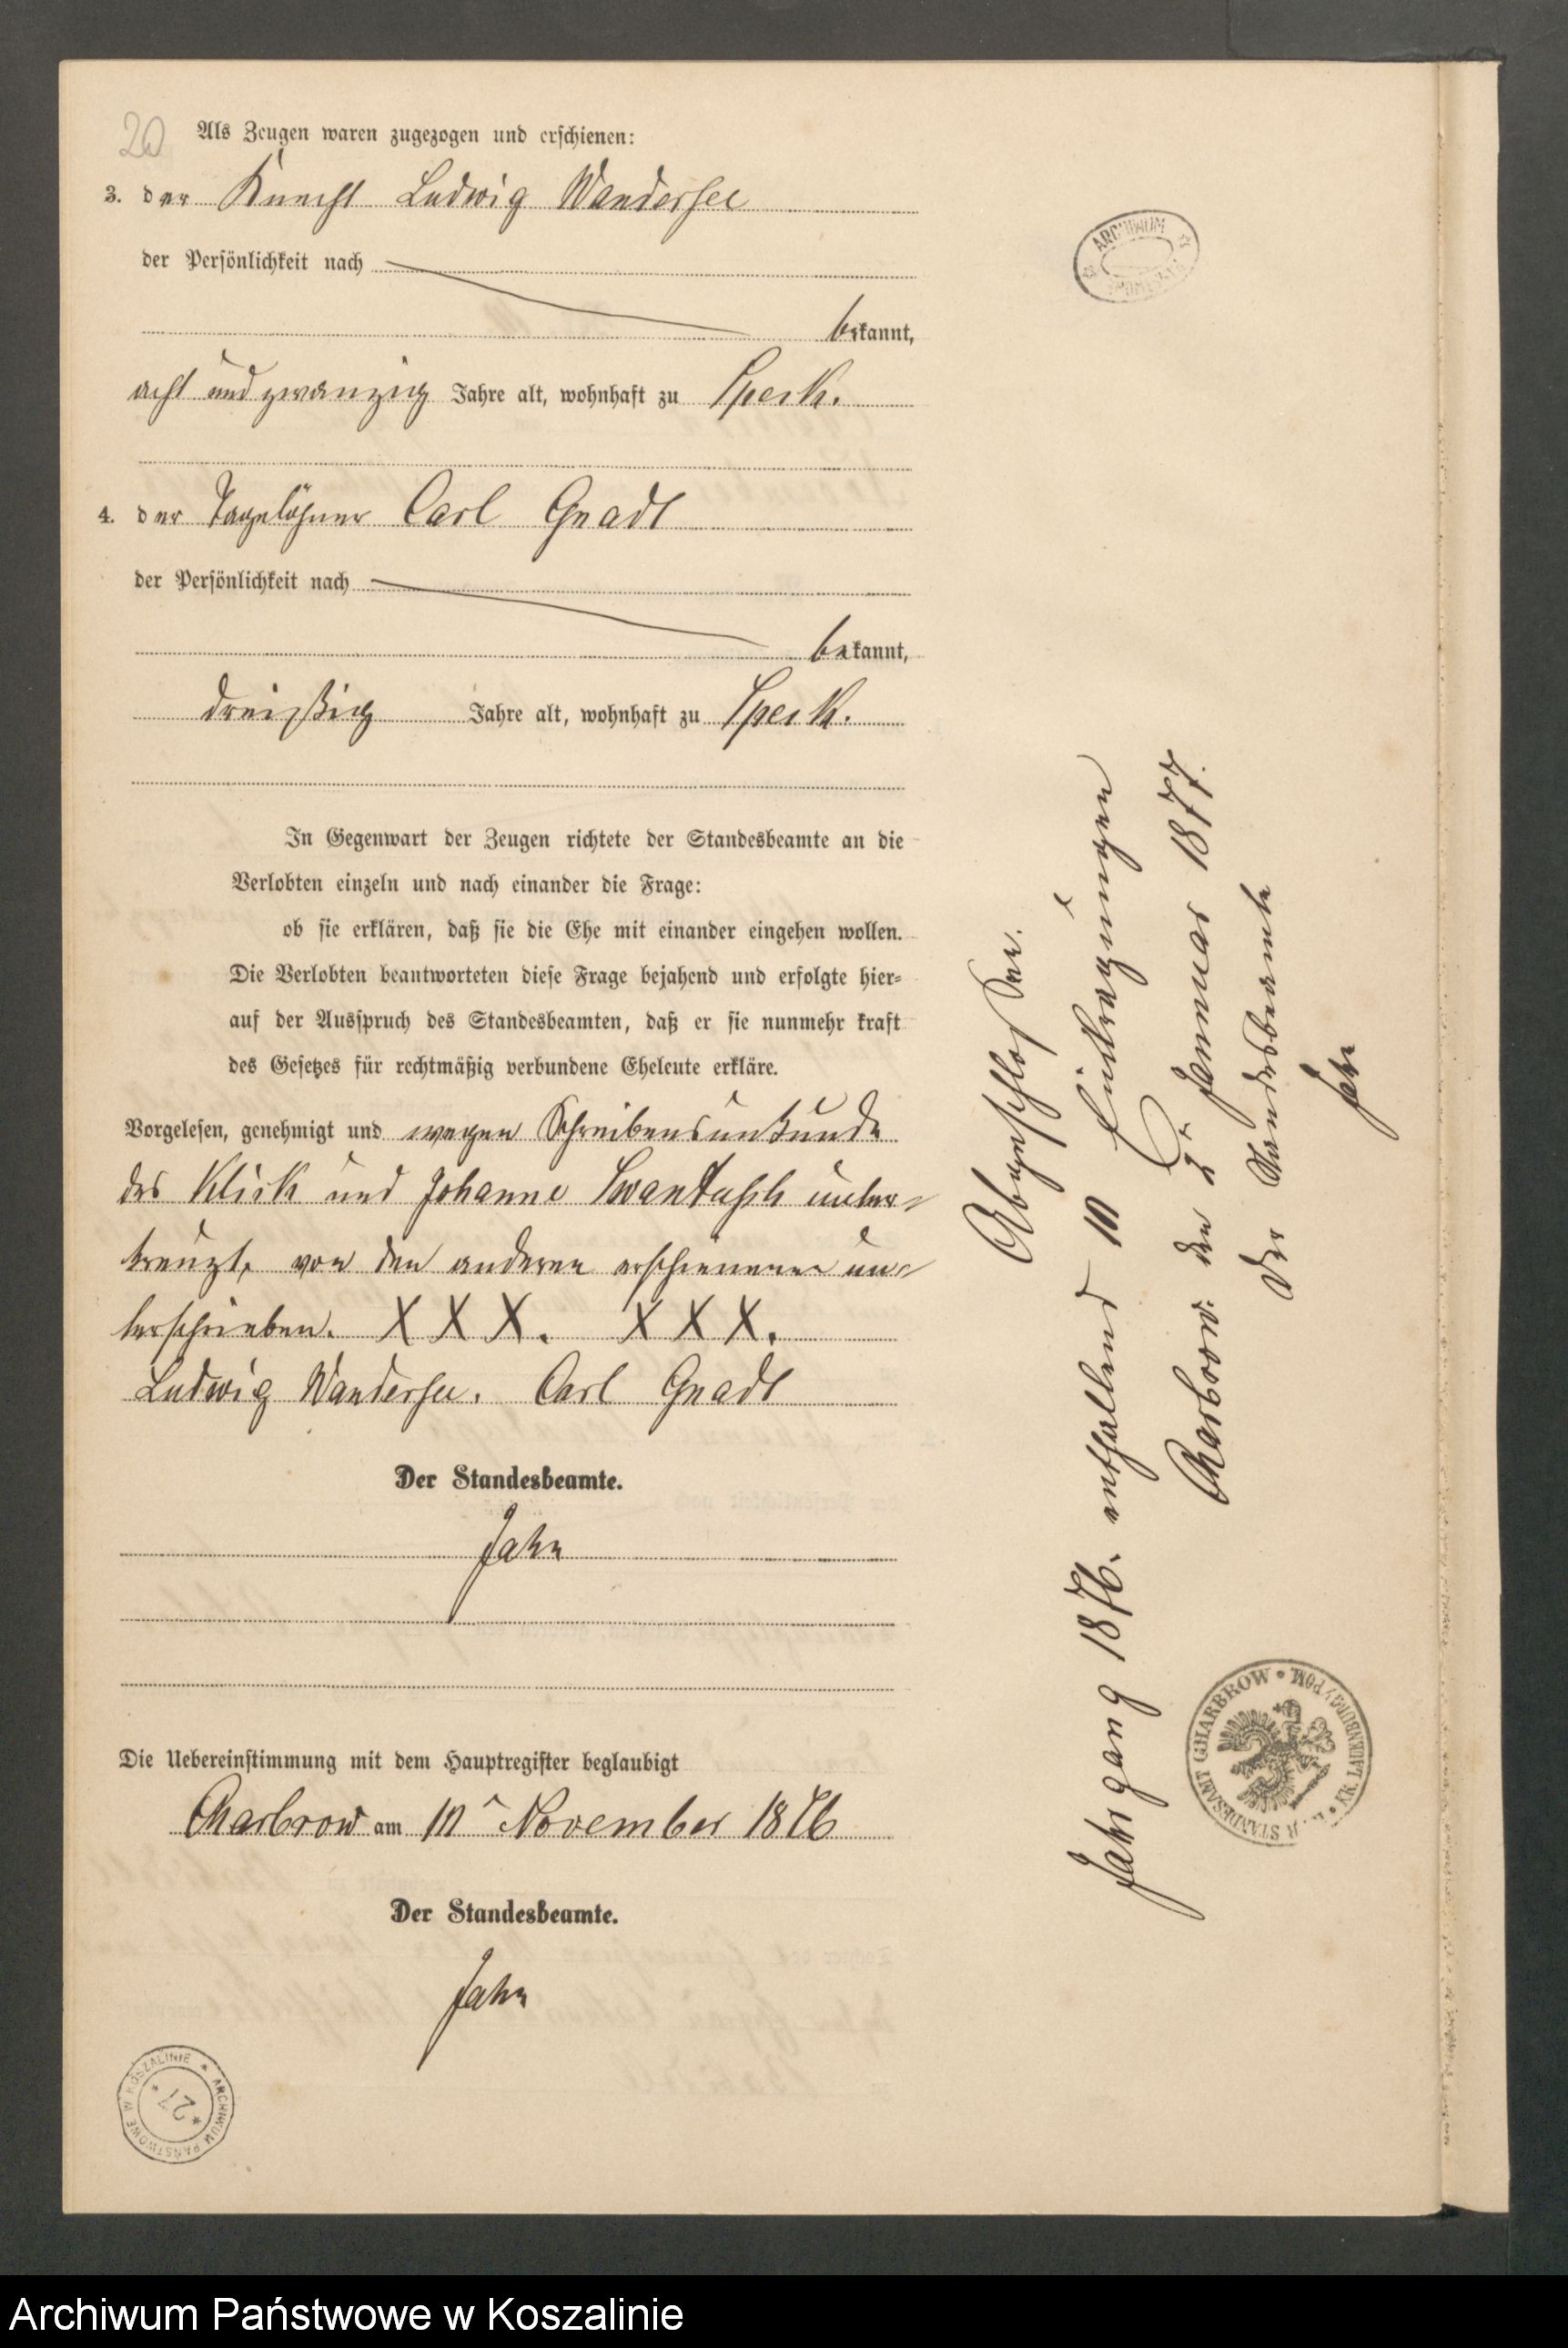 20
Als Zeugen waren zugezogen und erschienen:
3. der Knecht Ludwig Wandersee
der Persönlichkeit nach
bekannt,
acht und zwanzig Jahre alt, wohnhaft zu Speck.
4. der Tagelöhner Carl Gnadt
der Persönlichkeit nach
bekannt,
dreißig Jahre alt, wohnhaft zu Speck.
In Gegenwart der Zeugen richtete der Standesbeamte an die
Verlobten einzeln und nach einander die Frage:
ob sie erklären, daß sie die Ehe mit einander eingehen wollen.
Die Verlobten beantworteten diese Frage bejahend und erfolgte hier=
auf der Ausspruch des Standesbeamten, daß er sie nunmehr kraft
des Gesetzes für rechtmäßig verbundene Eheleute erkläre.
Vorgelesen, genehmigt und wegen Schreibensunkunde
des Klick und Johanne unter=
kreuzt, von den anderen erschienenen un=
terschrieben. X X X. X X X.
Ludwig Wandersee. Carl Gnadt
Der Standesbeamte.
Jahn
Die Uebereinstimmung mit dem Hauptregister beglaubigt
Charbrow am 10 November 1876
Der Standesbeamte.
Jahn
ARCHIWUM PAŃSTWOWE W KOSZALINIE
* 27 *
ARCHIWUM
Abgeschlossen der
Jahrgang 1876. enthaltend 10 Eintragungen
Charbrow den 2 Januar 1877.
Der Standesbeamte
Jahn
STANDESAMT CHARBROW • KR. LAUENBURG / POM.
Archiwum Państwowe w Koszalinie